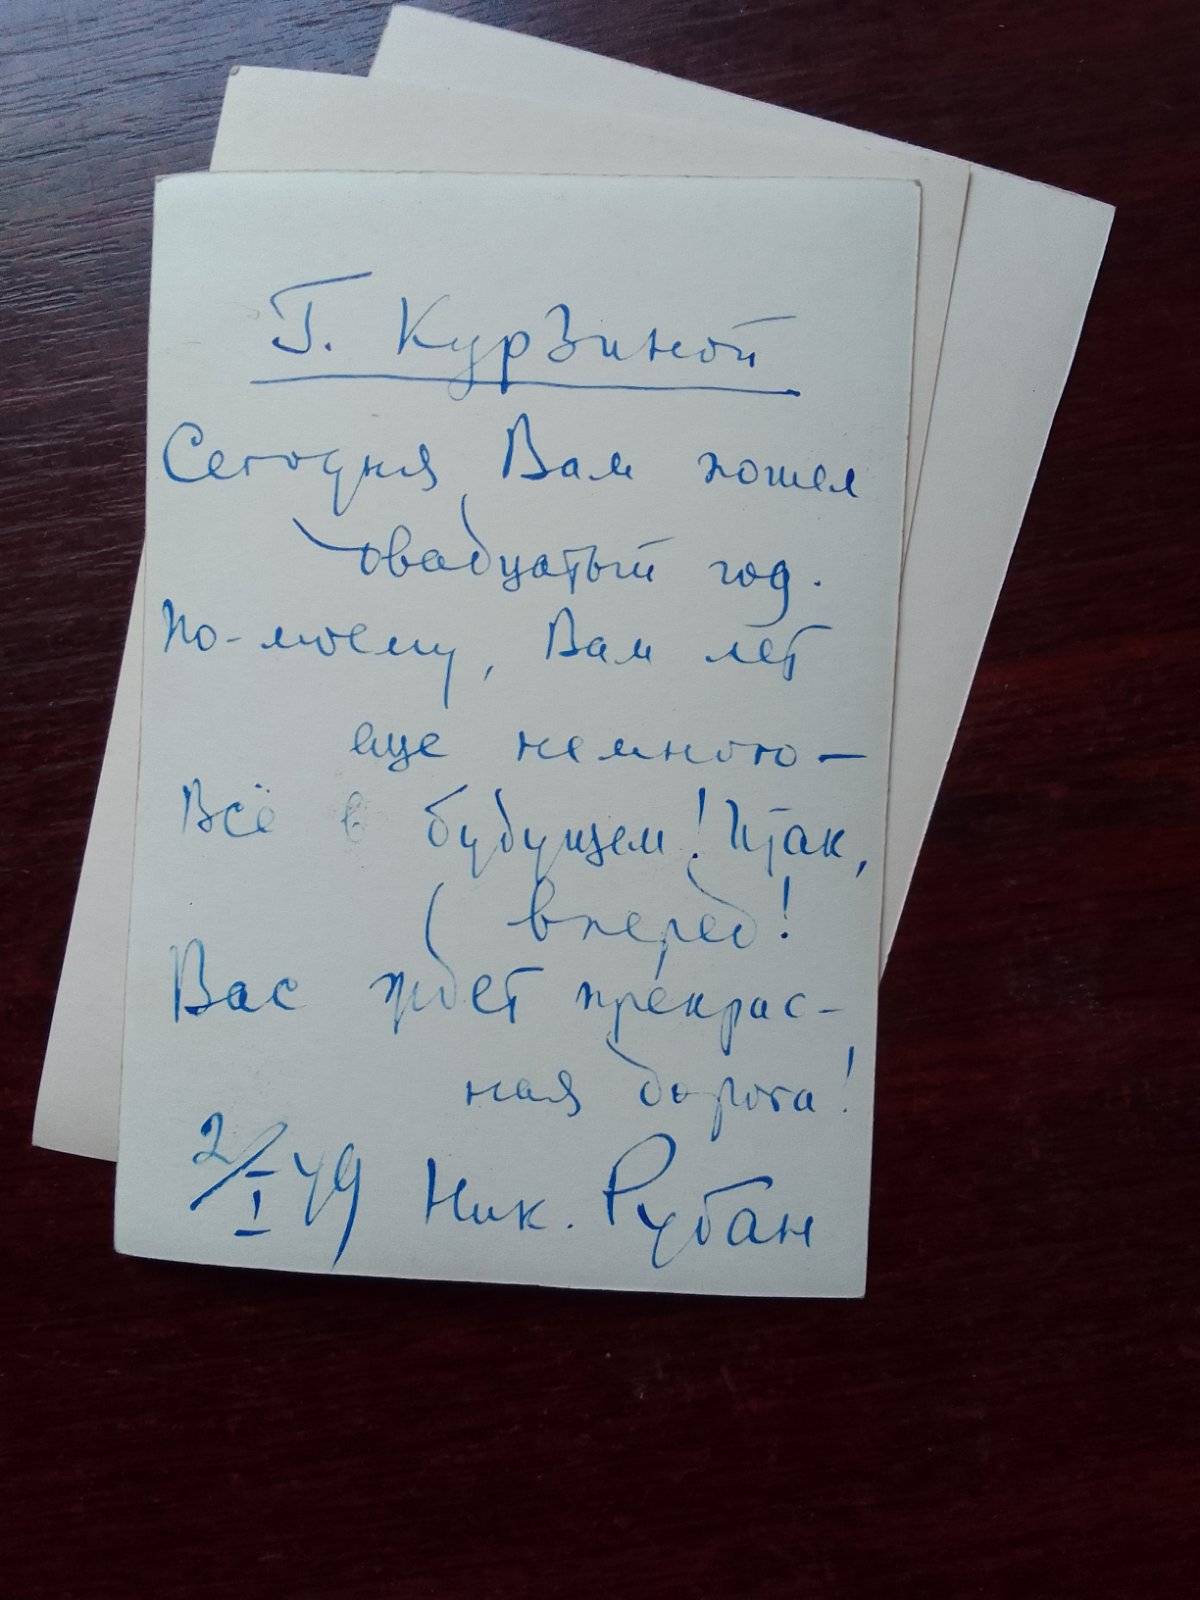 Г. Курзиной
Сегодня Вам пошел
двадцатый год.
По-моему, Вам лет
еще немного —
Всё в будущем! Итак,
вперед!
Вас ждет прекрас-
ная дорога!
2/I 49 Ник. Рубан